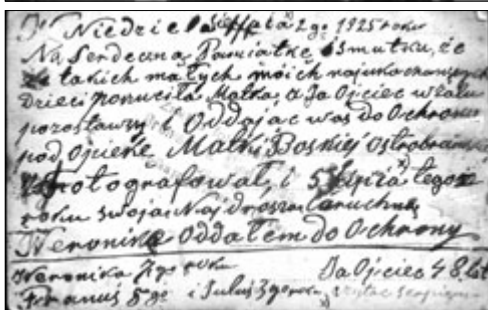 W Niedziela 2go 1925 roku
Na Serdeczną Pamiątkę Smutku, że
takich małych moich najukochanszych
Dzieci porzuciła Matka, a Ja Ojciec w żalu
pozostawszy i Oddając was do Ochrony
pod Opiekę Matki Boskiej Ostrobramskiej
fotografował, i 5 tegoż
roku swoją Najdroszą
Weronika Oddałem do Ochrony
Weronika 7go roku Ja Ojciec 48 lat
Franuś 5go i Juluś 3go roku